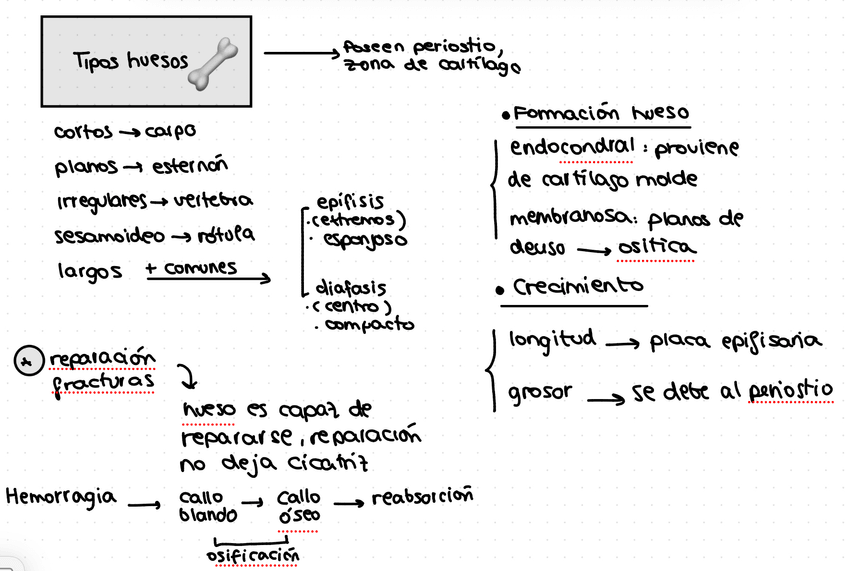 Tipos huesos
Poseen periostio,
zona de cartílago
cortos → carpo
planos → esternón
irregulares → vertebra
sesamoideo → rótula
largos + comunes
epífisis
·(extremos)
· esponjoso
diafasis
·(centro)
· compacto
• Formación hueso
endocondral : proviene
de cartílago molde
membranosa: planos de
deuso → ositica
• Crecimiento
longitud → placa epifisaria
grosor → se debe al periostio
* reparación
fracturas
hueso es capaz de
repararse, reparación
no deja cicatriz
Hemorragia → callo blando → callo óseo → reabsorción
osificación